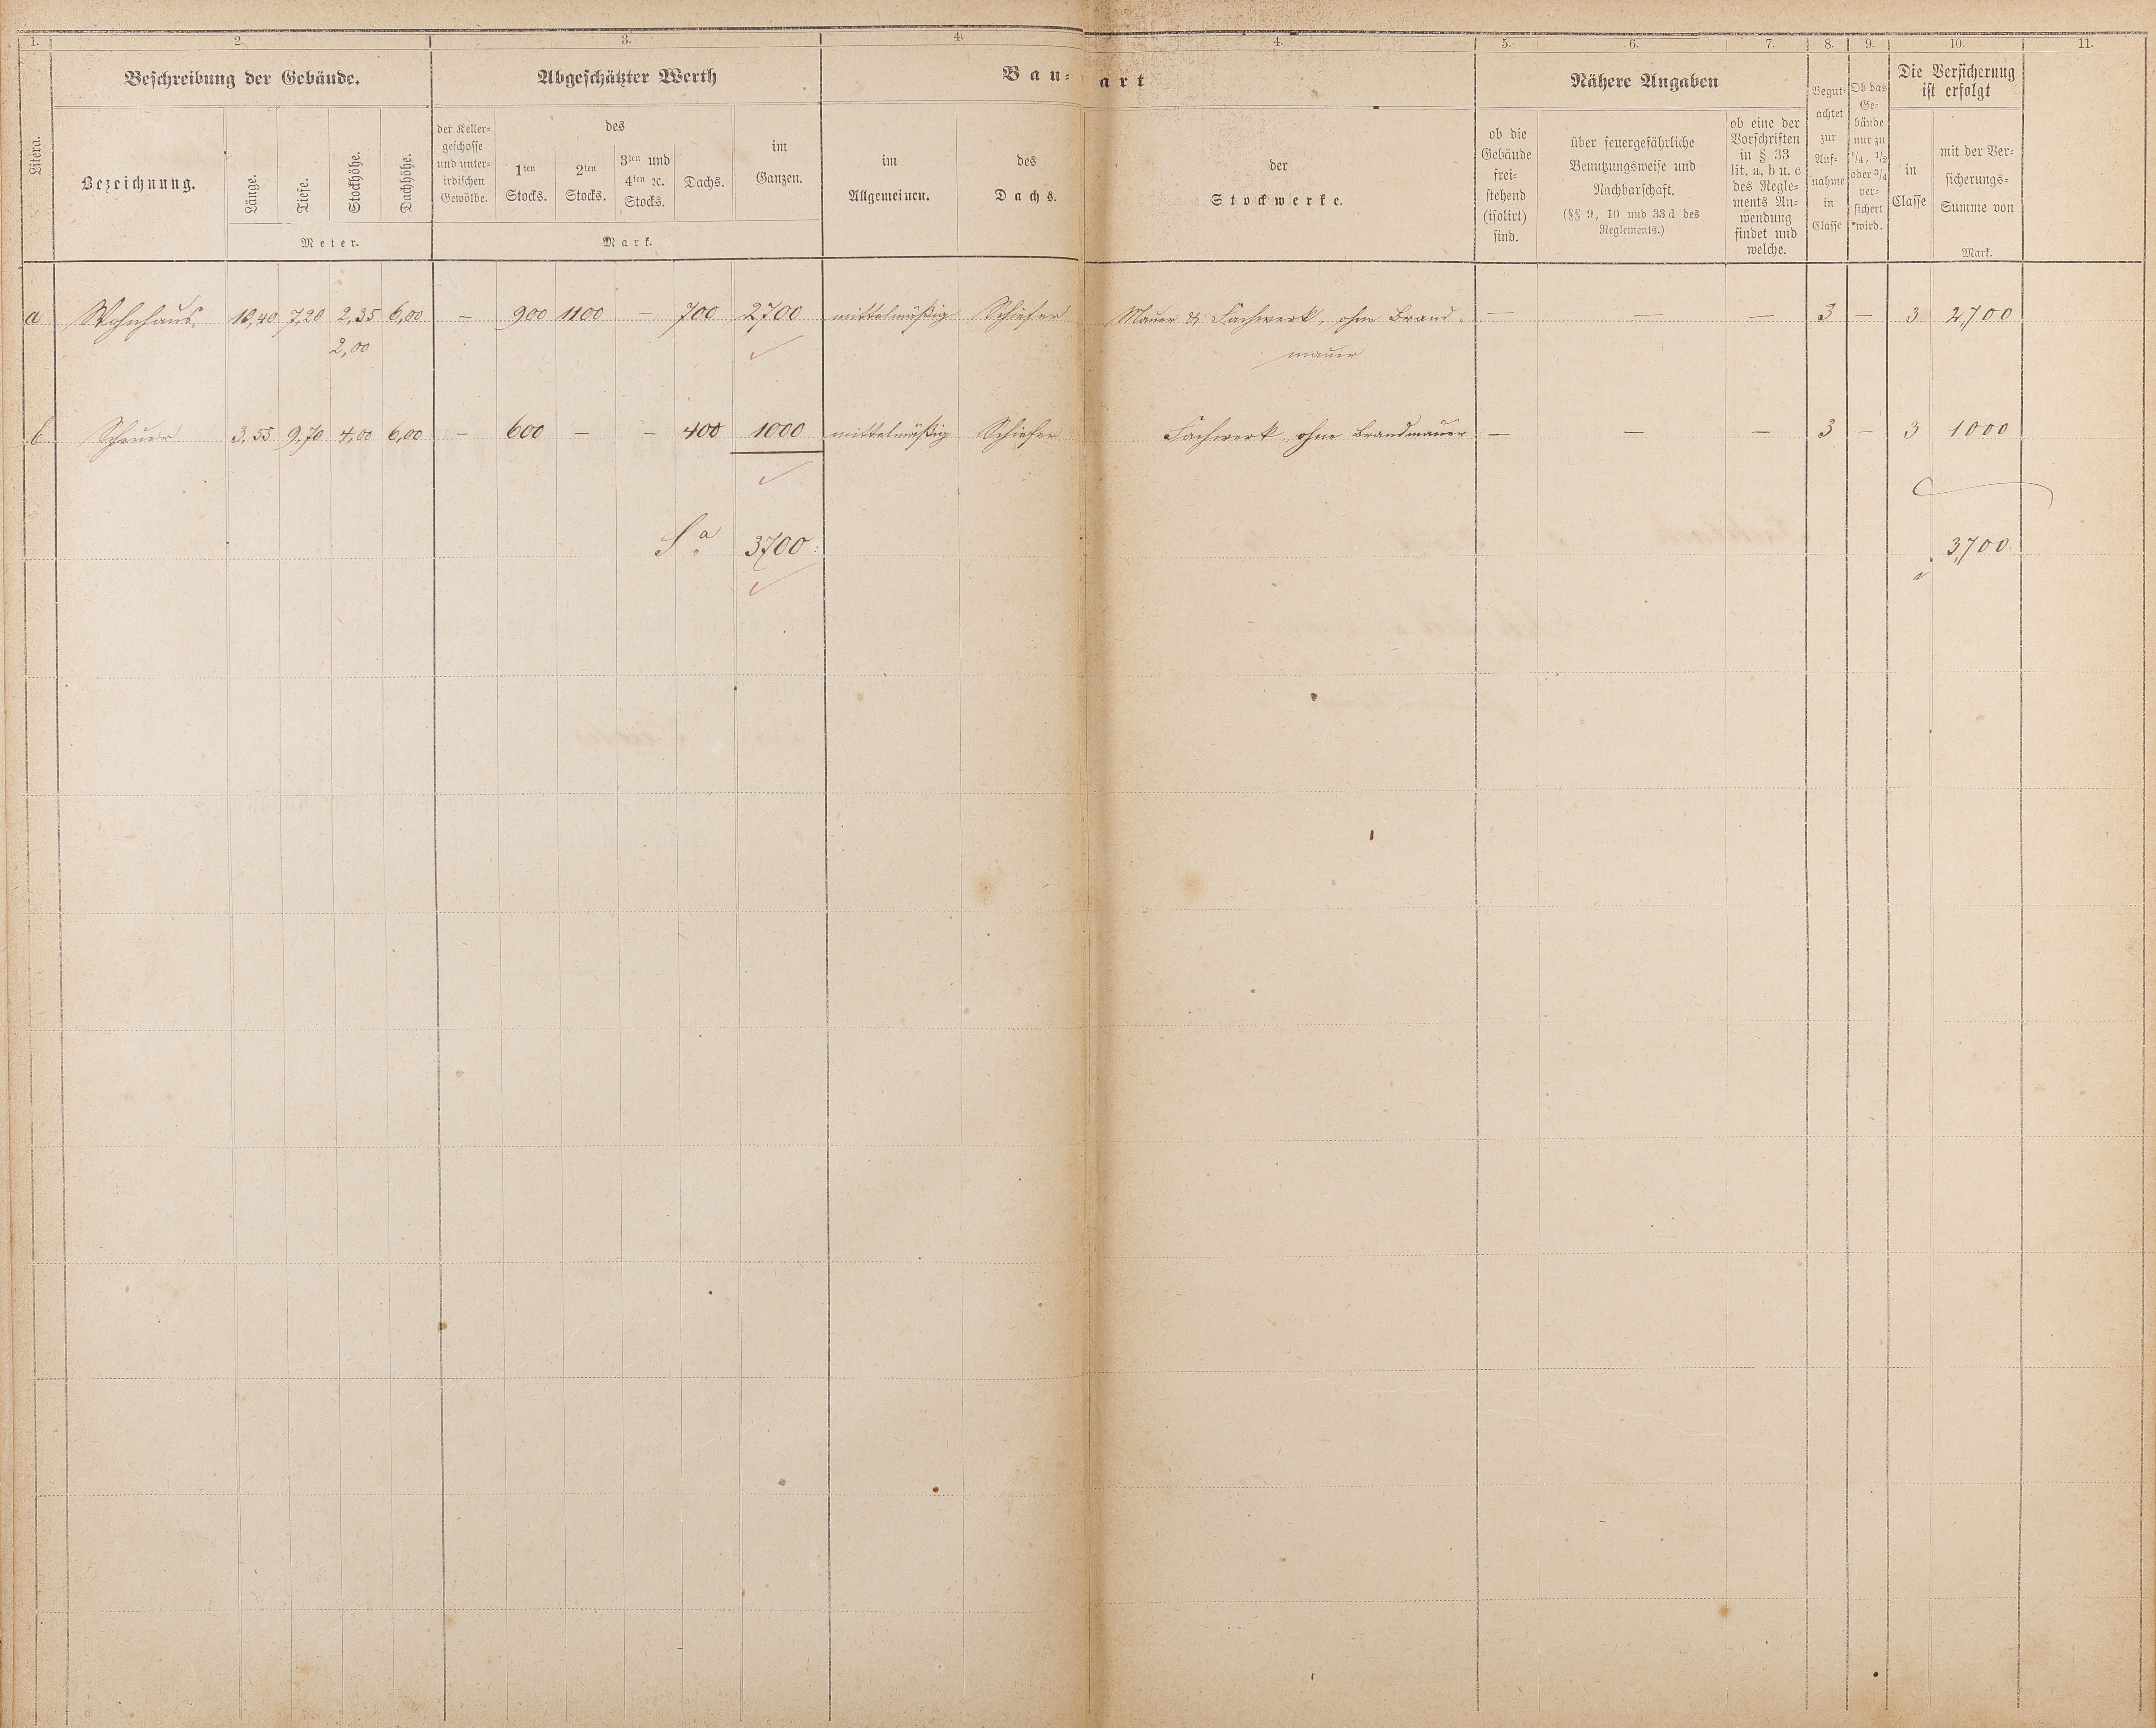 1. 2. 3. 4. 4. 5. 6. 7. 8. 9. 10. 11.
Litera.
Beschreibung der Gebäude.
Bezeichnung.
Länge.
Tiefe.
Stockhöhe.
Dachhöhe.
Meter.
Abgeschätzter Werth
der Keller-
geschosse
und unter-
irdischen
Gewölbe.
des
1ten
Stocks.
2ten
Stocks.
3ten und
4ten ꝛc.
Stocks.
Dachs.
im
Ganzen.
Mark.
Bau-art
im
Allgemeinen.
des
Dachs.
der
Stockwerke.
Nähere Angaben
ob die
Gebäude
frei-
stehend
(isolirt)
sind.
über feuergefährliche
Benutzungsweise und
Nachbarschaft.
(§§ 9, 10 und 33 d des
Reglements.)
ob eine der
Vorschriften
in § 33
lit. a, b u. c
des Regle-
ments An-
wendung
findet und
welche.
Begut-
achtet
zur
Auf-
nahme
in
Classe
Ob das
Ge-
bäude
nur zu
1/4, 1/2
oder 3/4
ver-
sichert
wird.
Die Versicherung
ist erfolgt
in
Classe
mit der Ver-
sicherungs-
Summe von
Mark.
a Wohnhaus. 10,40 7,20 2,35 6,00 — 900 1100 — 700 2700 mittelmäßig Schiefer Mauer & Fachwerk, ohne Brand- — — — 3 — 3 2,700
2,00 mauer
b Scheuer 3,55 9,70 4,00 6,00 — 600 — — 400 1000 mittelmäßig Schiefer Fachwerk, ohne Brandmauer — — — 3 — 3 1000
Sa. 3700 3,700